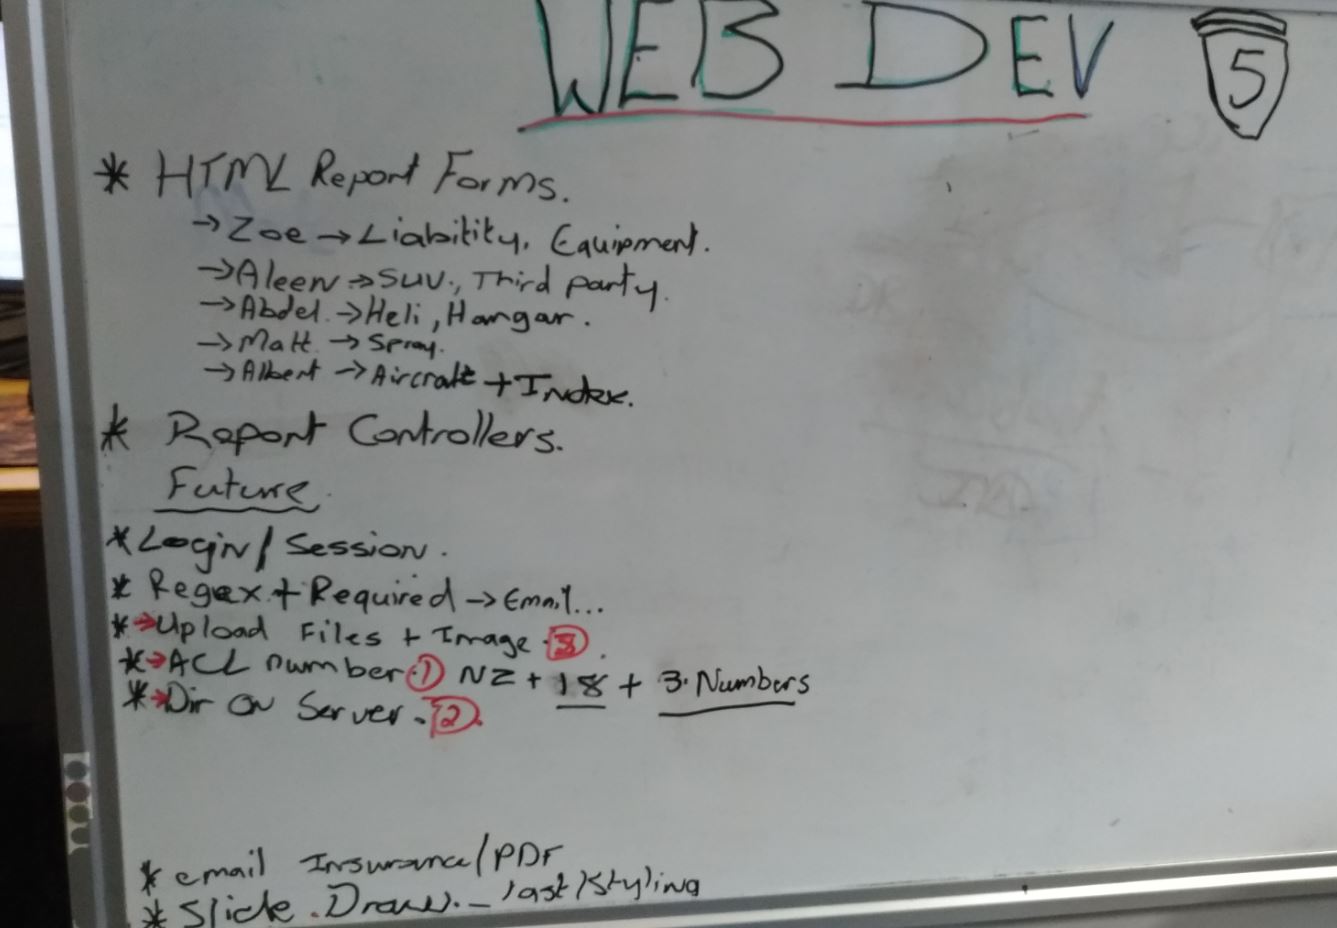 WEB DEV 5
* HTML Report Forms.
→ Zoe → Liabitity, Equipment.
→ Aleen → SUV., Third party.
→ Abdel. → Heli, Hangar.
→ Matt → Spray.
→ Albert → Aircraft + Index.
* Report Controllers.
Future.
* Login / Session.
* Regex + Required → Email...
* → Upload Files + Image. 3.
* → ACL number. 1 NZ + 18 + 3. Numbers
* → Dir on Server. 2.
* email Insurance/PDF
* Slide. Draw. - last/styling